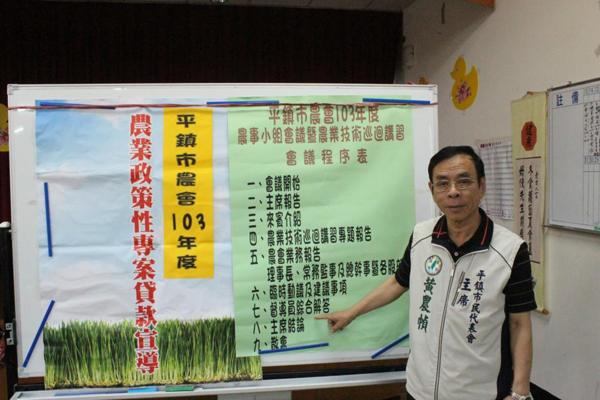 平鎮市農會
103
年度
農業政策性專案貸款宣導
平鎮市農會103年度
農事小組會議暨農業技術巡迴講習
會議程序表
一、會議開始
二、主席報告
三、來賓介紹
四、農業技術巡迴講習專題報告
五、農會業務報告
理事長、常務監事及總幹事暨各股
六、臨時動議及建議事項
七、督導員綜合解答
八、主席結論
九、散會
平鎮市民代表會
主席
黃農幀
註備